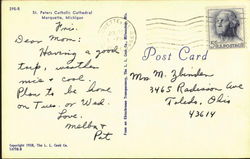 39E-8
St. Peters Catholic Cathedral
Marquette, Michigan
Fri.
Dear Mom:
Having a good
trip, weather
nice & cool.
Plan to be home
on Tues. or Wed.
Love,
Melba &
Pat
Copyright 1958, The L. L. Cook Co.
Post Card
Mrs M. Zbinden
3465 Radisson Ave
Toledo, Ohio
43614